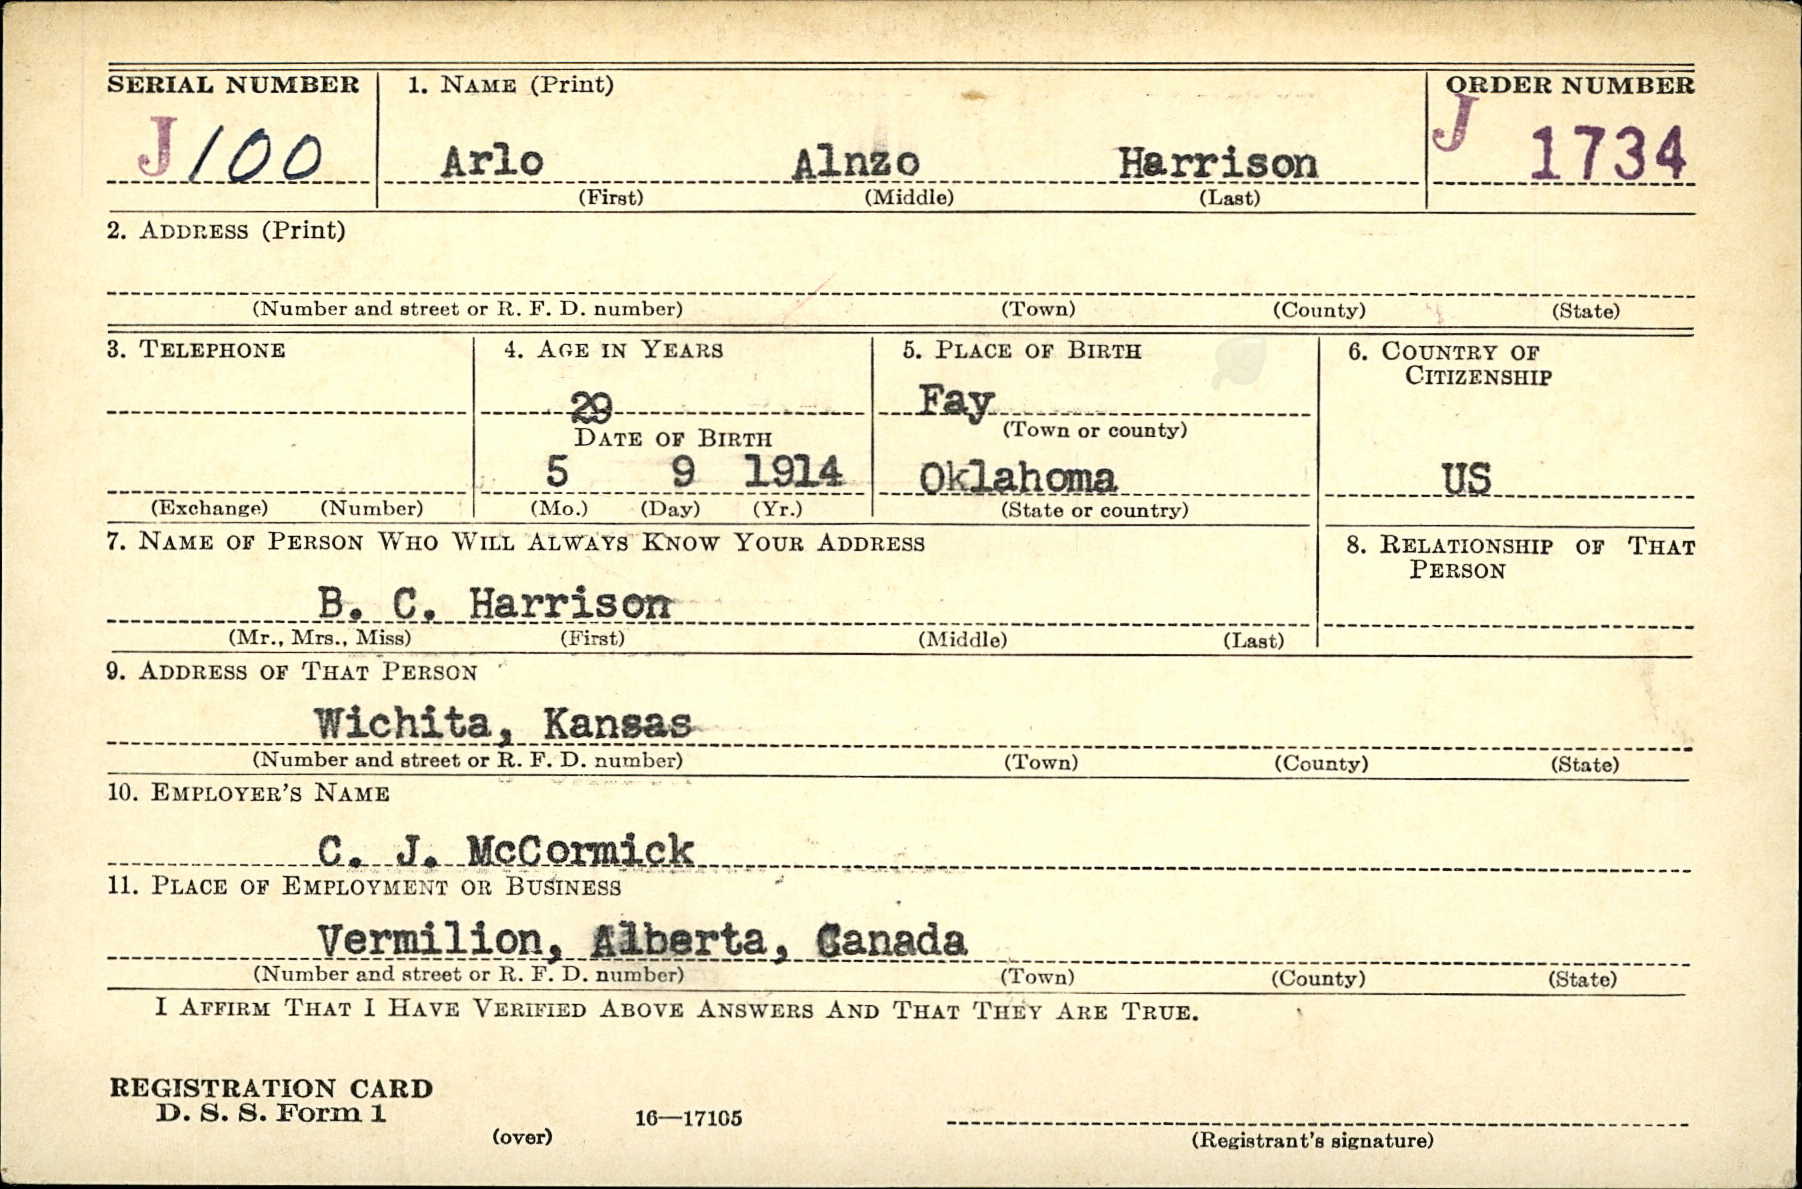 SERIAL NUMBER 1. NAME (Print) ORDER NUMBER
J 100 Arlo Alnzo Harrison J 1734
(First) (Middle) (Last)
2. ADDRESS (Print)
(Number and street or R. F. D. number) (Town) (County) (State)
3. TELEPHONE 4. AGE IN YEARS 5. PLACE OF BIRTH 6. COUNTRY OF
CITIZENSHIP
29 Fay
DATE OF BIRTH (Town or county)
5 9 1914 Oklahoma US
(Exchange) (Number) (Mo.) (Day) (Yr.) (State or country)
7. NAME OF PERSON WHO WILL ALWAYS KNOW YOUR ADDRESS 8. RELATIONSHIP OF THAT
PERSON
B. C. Harrison
(Mr., Mrs., Miss) (First) (Middle) (Last)
9. ADDRESS OF THAT PERSON
Wichita, Kansas
(Number and street or R. F. D. number) (Town) (County) (State)
10. EMPLOYER'S NAME
C. J. McCormick
11. PLACE OF EMPLOYMENT OR BUSINESS
Vermilion, Alberta, Canada
(Number and street or R. F. D. number) (Town) (County) (State)
I AFFIRM THAT I HAVE VERIFIED ABOVE ANSWERS AND THAT THEY ARE TRUE.
REGISTRATION CARD
D. S. S. Form 1 16—17105
(over) (Registrant's signature)